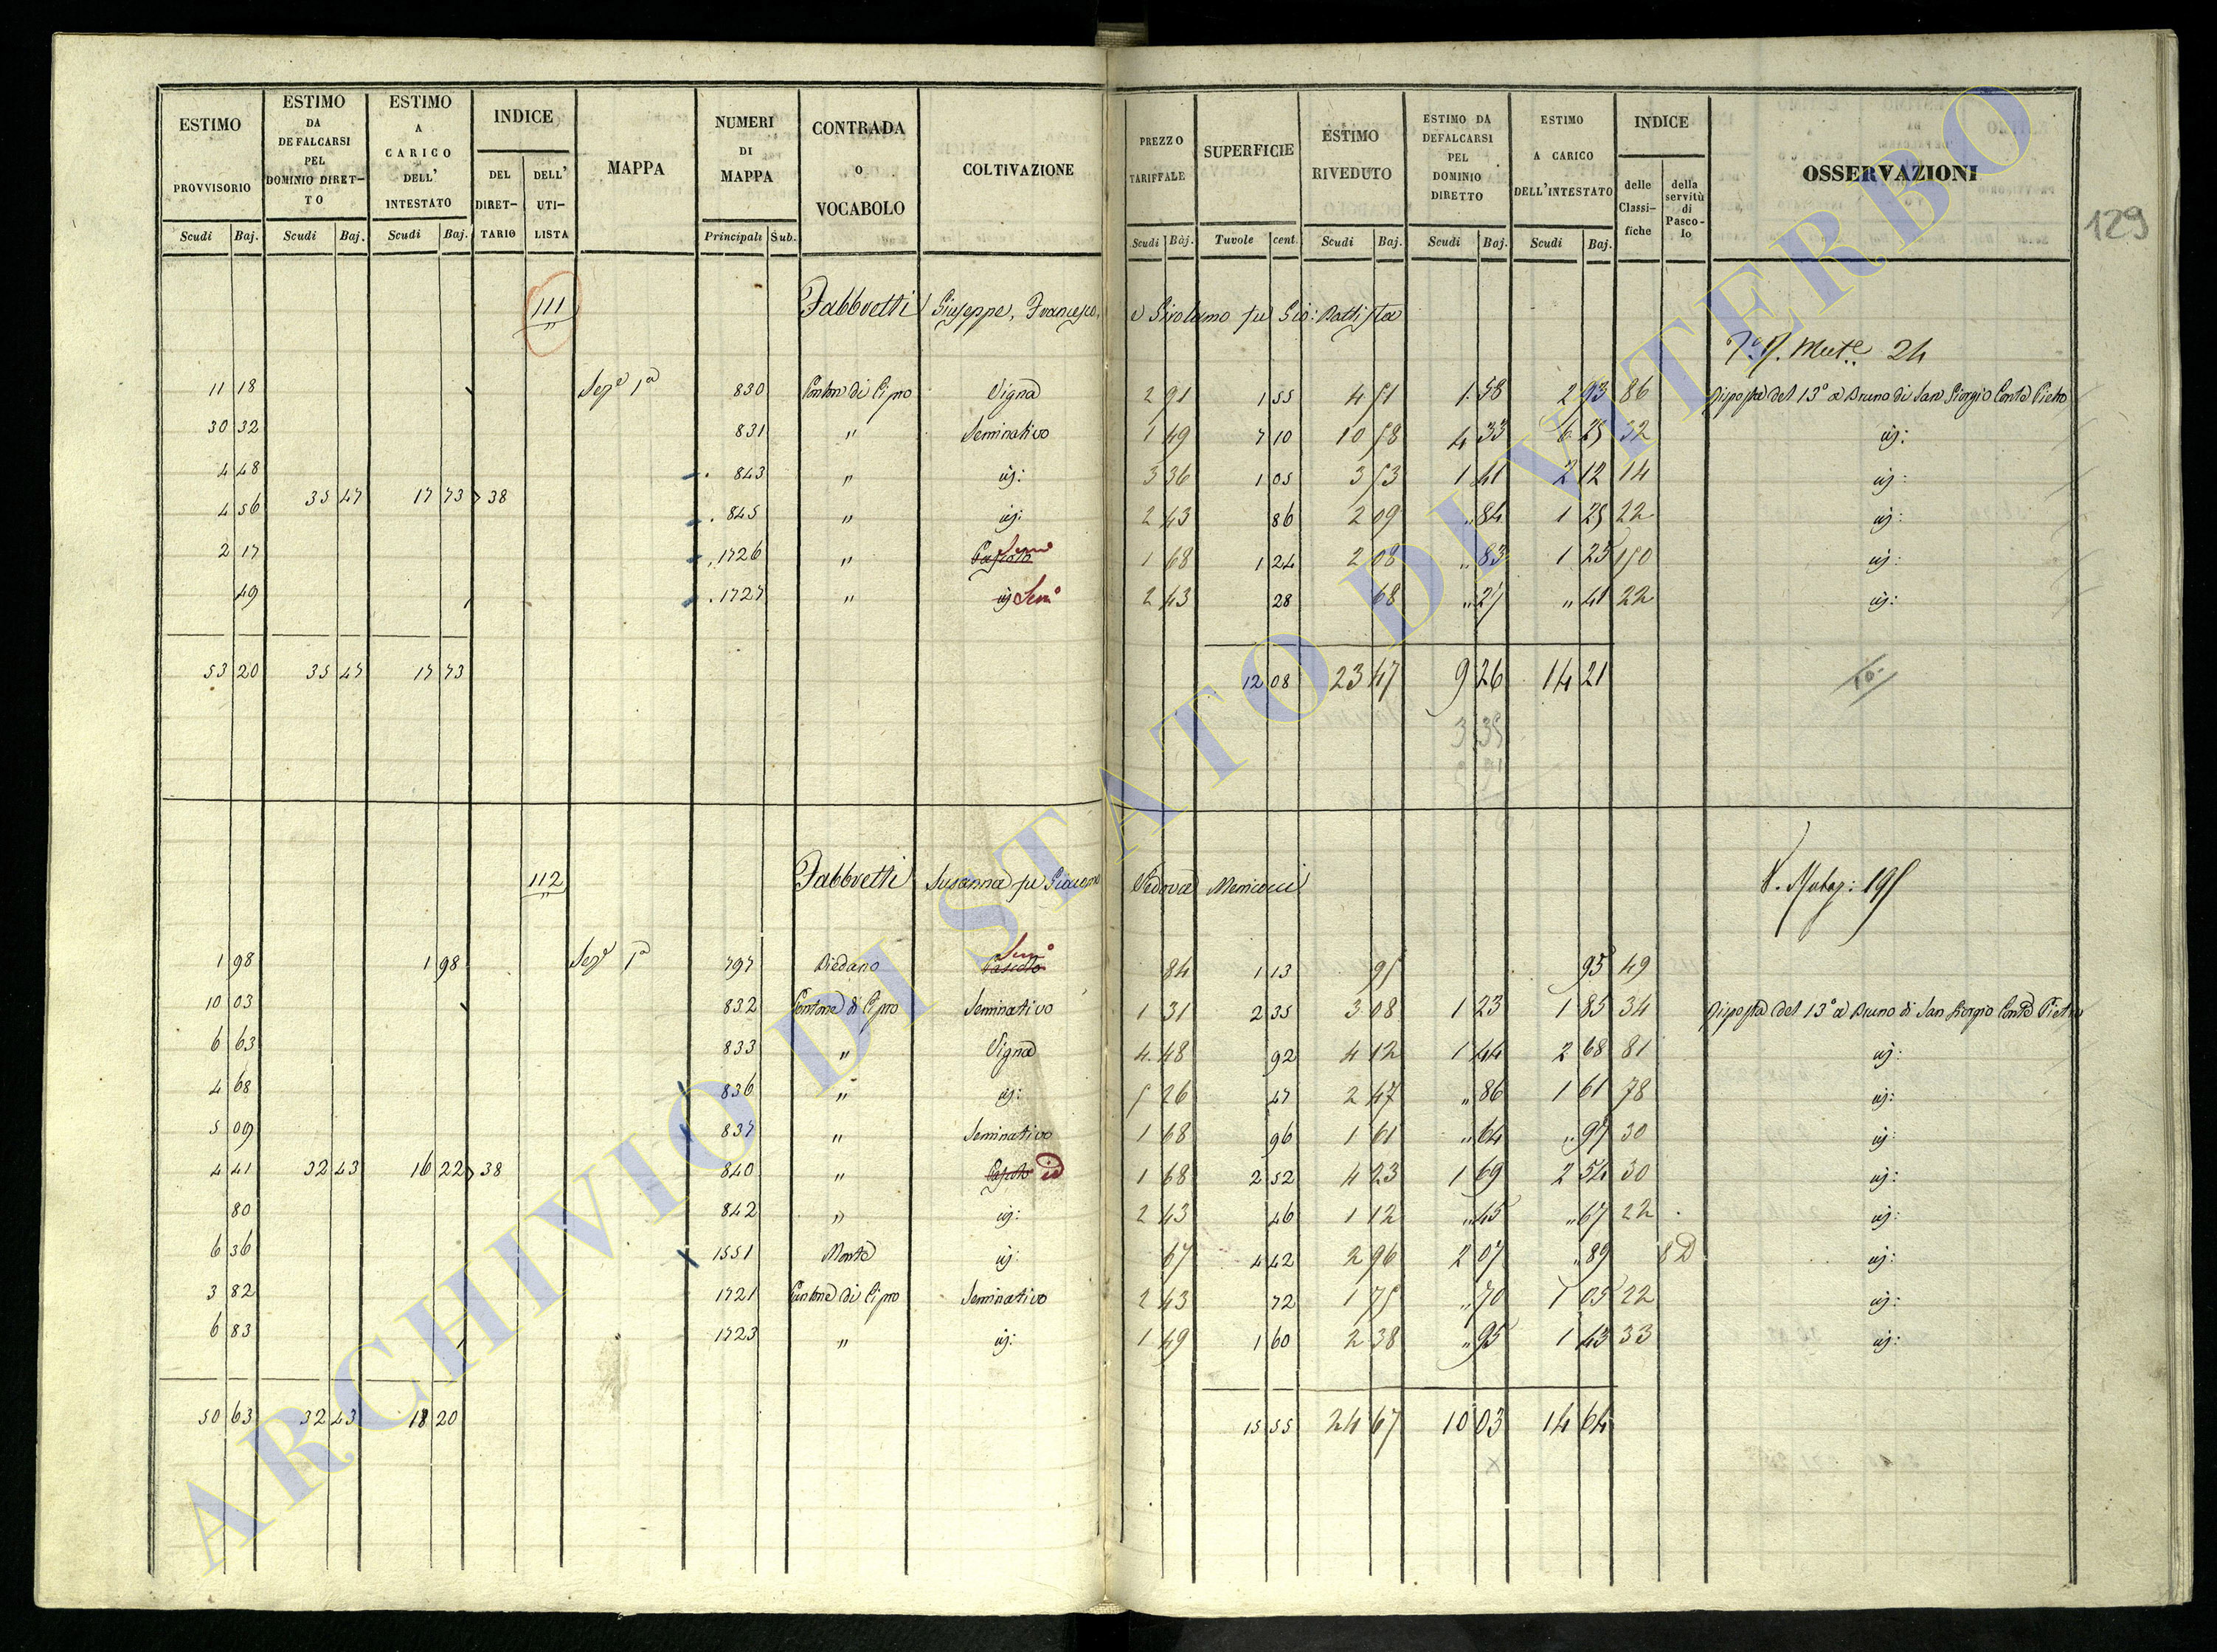 ESTIMO PROVVISORIO Scudi Baj.
ESTIMO DA DEFALCARSI PEL DOMINIO DIRETTO Scudi Baj.
ESTIMO A CARICO DELL' INTESTATO Scudi Baj.
INDICE DEL DIRETTARIO DELL' UTILISTA
MAPPA
NUMERI DI MAPPA Principali Sub.
CONTRADA o VOCABOLO
COLTIVAZIONE
PREZZO TARIFFALE Scudi Baj.
SUPERFICIE Tavole cent.
ESTIMO RIVEDUTO Scudi Baj.
ESTIMO DA DEFALCARSI PEL DOMINIO DIRETTO Scudi Baj.
ESTIMO A CARICO DELL'INTESTATO Scudi Baj.
INDICE delle Classifiche della servitù di Pascolo
OSSERVAZIONI
129
111 Fabbretti Giuseppe, Francesco, e Girolamo fu Gio: Battista
24
11 18 Sez.e 1a 830 Cantone di Cipro Vigna 2 91 1 55 4 51 1 58 2 93 86 Risposta del 13° a Bruno di San Giorgio Conte Pietro
30 32 831 " Seminativo 1 49 7 10 10 58 4 33 6 25 32 id:
4 48 843 " id: 3 36 1 05 3 53 1 41 2 12 14 id:
4 56 35 47 17 73 38 845 " id: 2 43 86 2 09 " 84 1 25 22 id:
2 17 1726 " Pascolo Sem° 1 68 1 24 2 08 " 83 1 25 150 id:
49 1727 " id Sem° 2 43 28 68 " 27 " 41 22 id:
53 20 35 47 17 73 12 08 23 47 9 26 14 21 10
3 35
112 Fabbretti Susanna fu Giacomo Vedova Menicucci
V. Mutaz: 195
1 98 1 98 Sez.e 1a 797 Biedano Pascolo Sem° 84 1 13 95 95 49
10 03 832 Cantone di Cipro Seminativo 1 31 2 35 3 08 1 23 1 85 34 Risposta del 13° a Bruno di San Giorgio Conte Pietro
6 63 833 " Vigna 4 48 92 4 12 1 44 2 68 81 id:
4 68 836 " id: 5 26 47 2 47 " 86 1 61 78 id:
5 09 837 " Seminativo 1 68 96 1 61 " 64 " 97 30 id:
4 41 32 43 16 22 38 840 " Pascolo id 1 68 2 52 4 23 1 69 2 54 30 id:
80 842 " id: 2 43 46 1 12 " 45 " 67 22 id:
6 36 1551 Monte id: 67 4 42 2 96 2 07 " 89 8 D id:
3 82 1721 Cantone di Cipro Seminativo 2 43 72 1 75 " 70 1 05 22 id:
6 83 1723 " id: 1 49 1 60 2 38 " 95 1 43 33 id:
50 63 32 43 18 20 15 55 24 67 10 03 14 64
ARCHIVIO DI STATO DI VITERBO